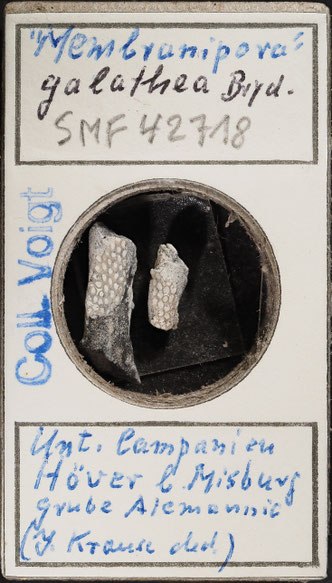 "Membranipora"
galathea Bryd.
SMF 42718
Coll. Voigt
Unt. Campanien
Höver b. Misburg
grube Alemannia
(J. Krause ded.)